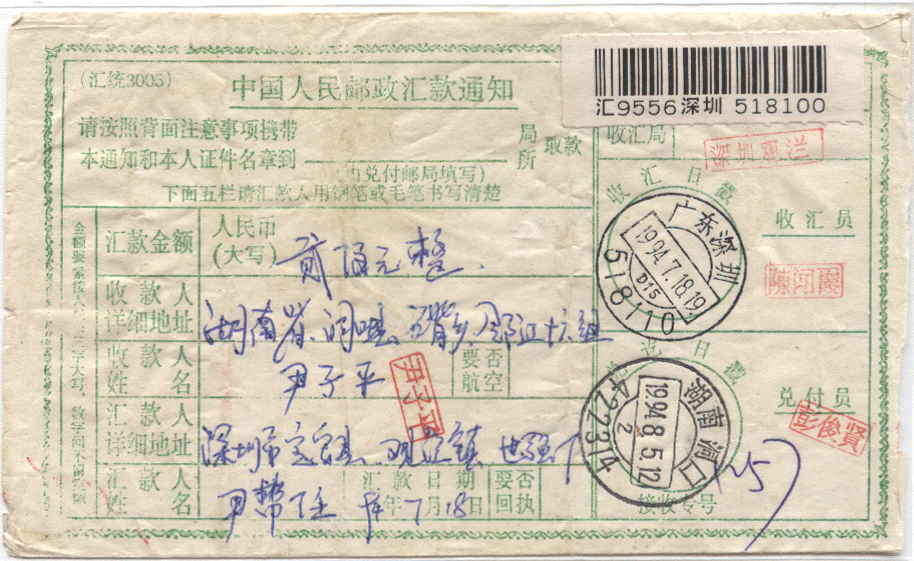 (汇统3005)
中国人民邮政汇款通知
汇9556深圳 518100
请按照背面注意事项携带
本通知和本人证件名章到 局所 取款
(由兑付邮局填写)
下面五栏请汇款人用钢笔或毛笔书写清楚
收汇局
深圳观兰
汇款金额 人民币(大写) 贰佰元整
收款人详细地址 湖南省洞口县
收款人姓名 尹子平 要否航空
尹子平
汇款人详细地址 深圳市宝安县 观兰镇
汇款人姓名 尹帮任 汇款日期 年7月18日 要否回执
收汇日戳
广东深圳
1994.7.18.19
D15
518110
收汇员
陳闻霞
日戳
湖南洞口
1994.8.5.12
2
422314
兑付员
彭俊賢
接收专号